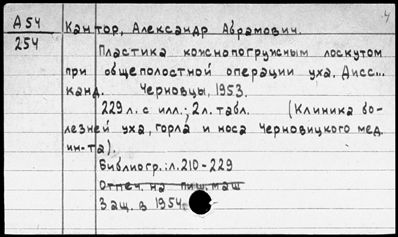 А54
254
Кантор, Александр Абрамович.
Пластика кожнопогружным лоскутом
при общеполостной операции уха. Дисс...
канд. Черновцы, 1953.
229 л. с илл.; 2 л. табл. (Клиника бо-
лезней уха, горла и носа Черновицкого мед.
ин-та).
Библиогр.: л. 210-229
Отпеч. на пиш. маш
Защ. в 1954г.